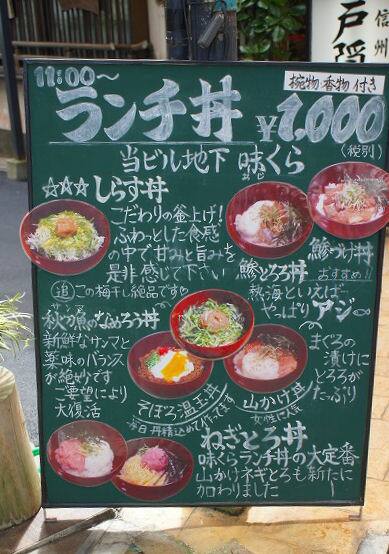 信州
戸隠
11:00～
ランチ丼
椀物 香物 付き
¥1,000
(税別)
当ビル地下 味くら
☆☆☆しらす丼
こだわりの釜上げ!
ふわっとした食感
の中で甘みと旨みを
是非感じて下さい
追 この梅干し絶品です♡
鯵づけ丼
おすすめ!!
鯵とろ丼
熱海といえばー
やっぱりアジ〜
秋の魚のなめろう丼
新鮮なサンマと
薬味のバランス
が絶妙です
ご要望により
大復活
そぼろ温玉丼
毎日丹精込めて作ってます
山かけ丼
女性に人気
まぐろの
漬けに
とろろが
たっぷり
ねぎとろ丼
味くらランチ丼の大定番
山かけネギとろも新たに
加わりました